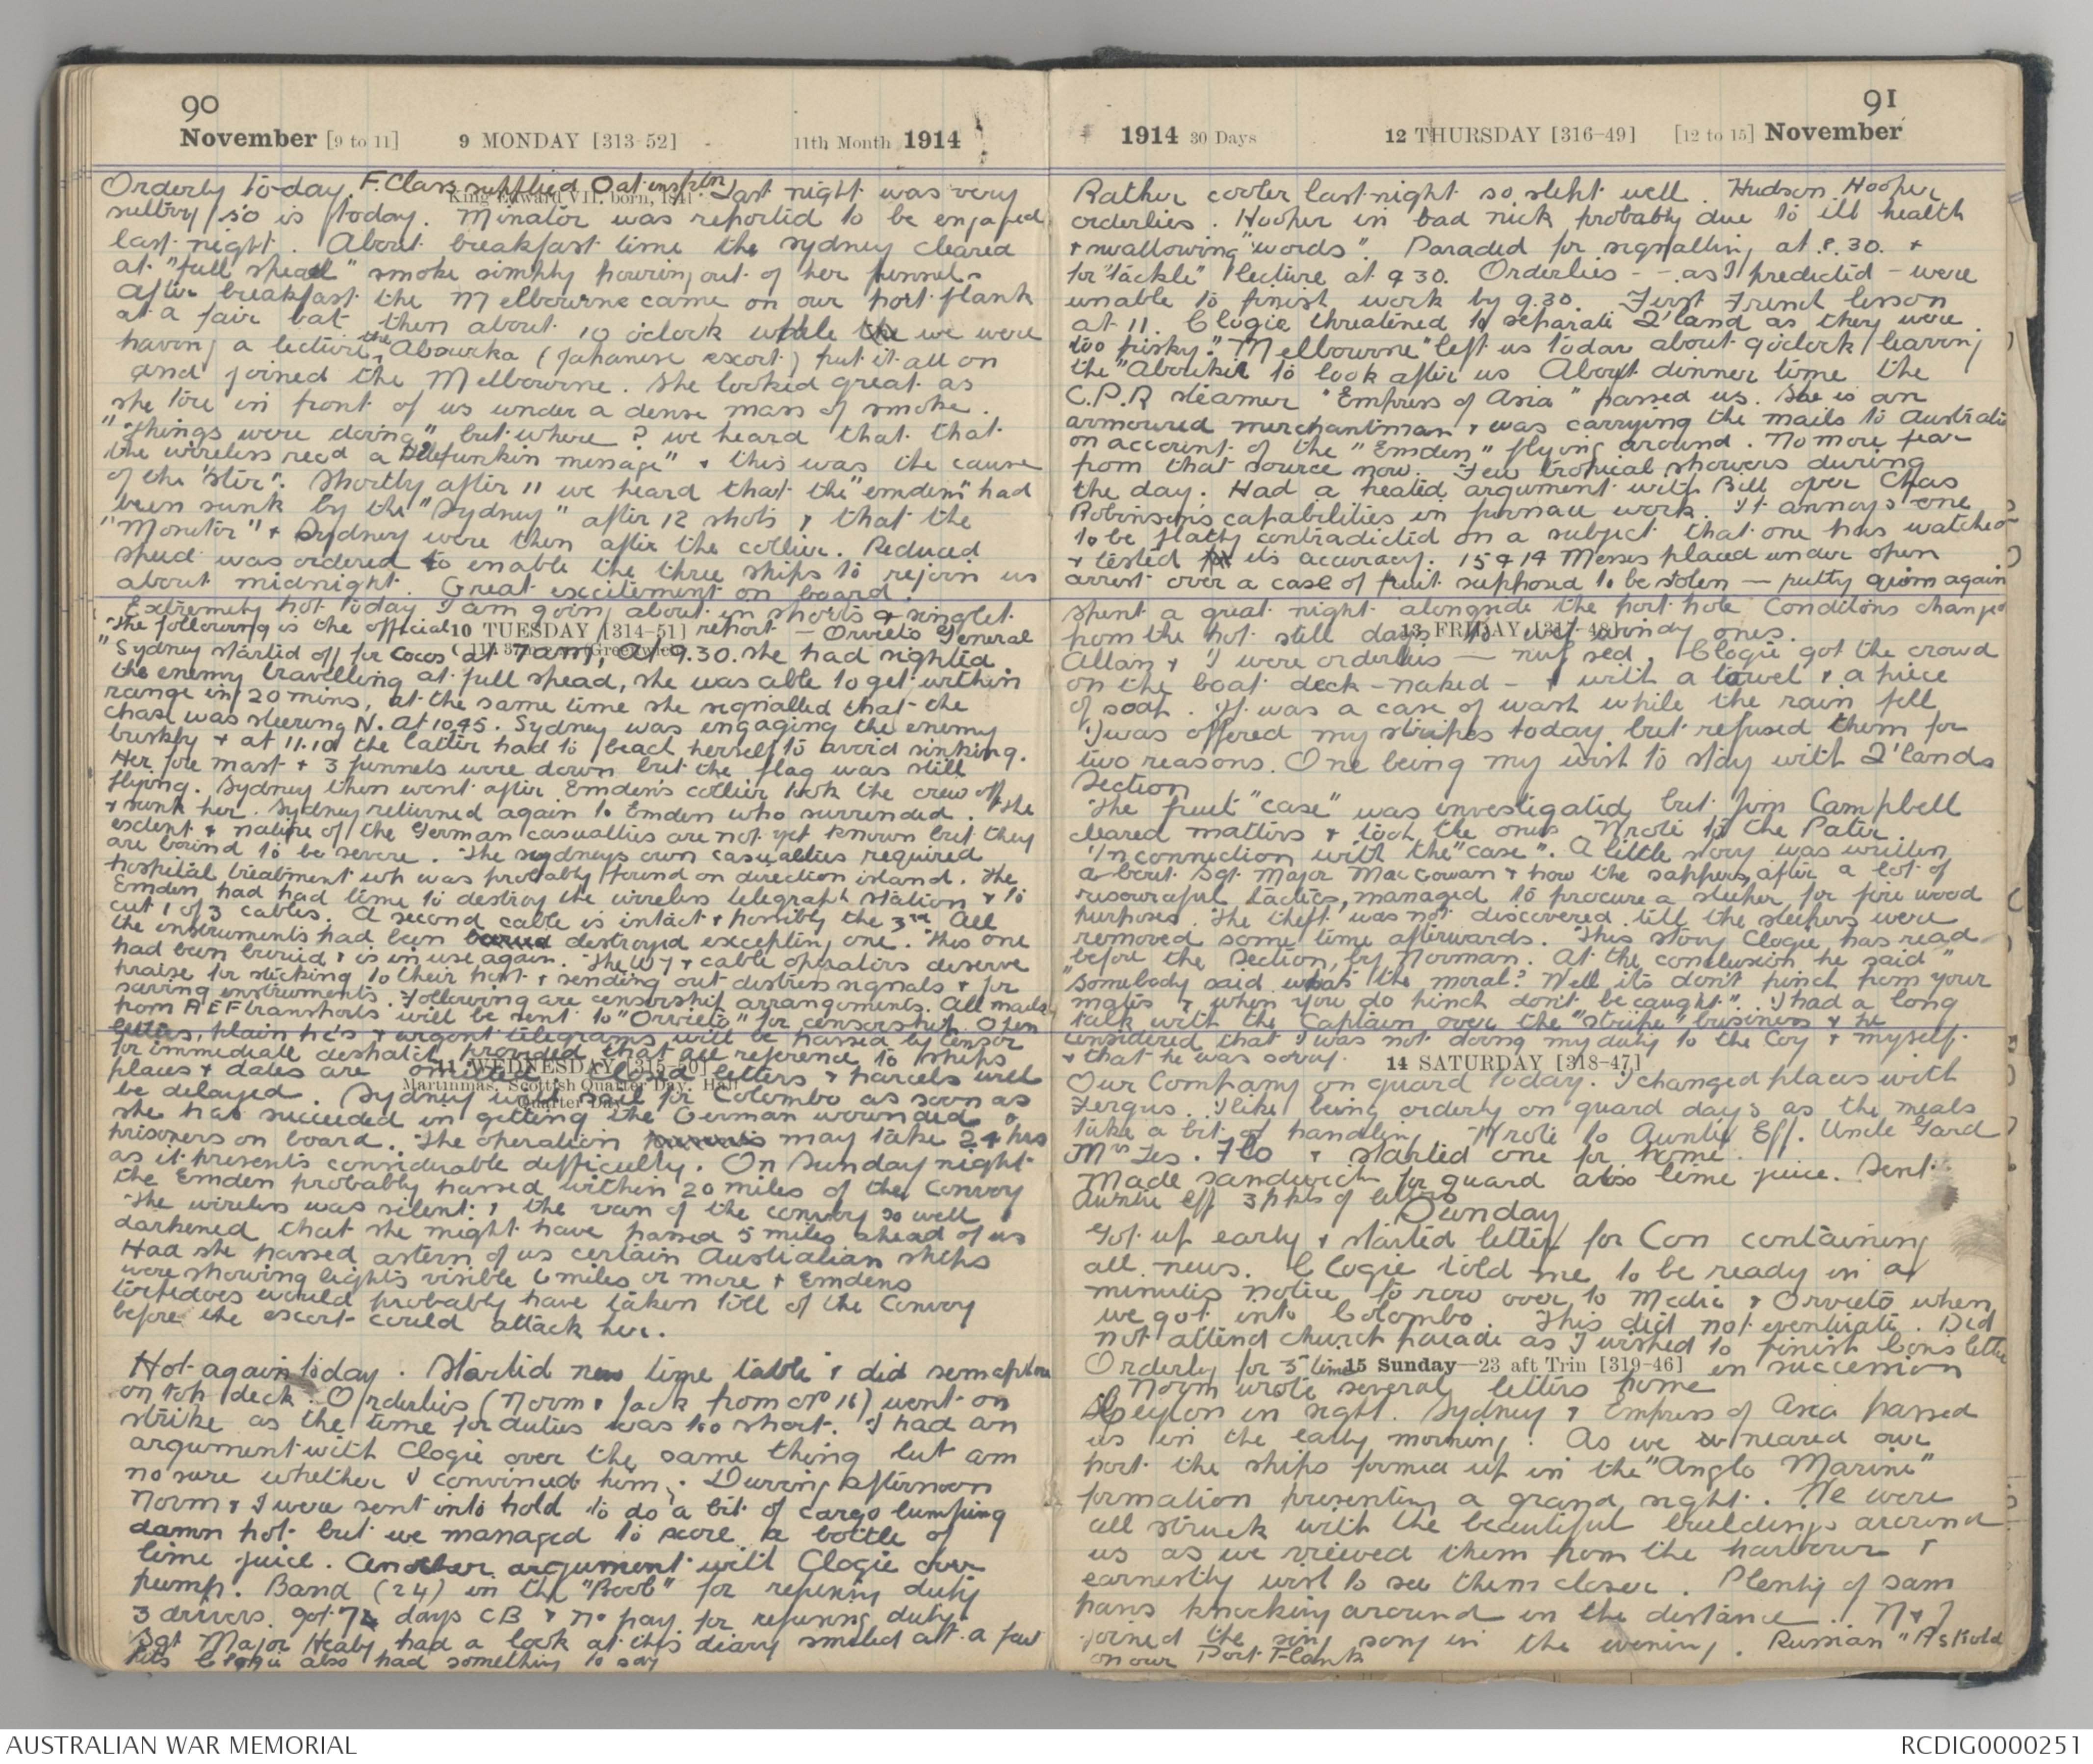 90
November [9 to 11] 9 MONDAY [313-52] 11th Month 1914
King Edward VII. born, 1841
Orderly today. F. Class supplied O at Last night was very
sultry so is today. Minator was reported to be engaged
last night. About breakfast time the sydney cleared
at "full speed" smoke simply pouring out of her funnels
After breakfast the Melbourne came on our port flank
at a fair bat then about 10 oclock while the we were
having a lecture the Abourka (Japanese escort) put it all on
and joined the Melbourne. She looked great as
she tore in front of us under a dense mass of smoke.
"Things were doing" but where? we heard that that
the wireless recd a Telefunkin message" & this was the cause
of the "stir". Shortly after 11 we heard that the "emden" had
been sunk by the "Sydney" after 12 shots & that the
"Monitor" & Sydney were then after the collier. Reduced
speed was ordered to enable the three ships to rejoin us
about midnight. Great excitement on board.
Extremely hot today I am going about in shorts & singlet.
10 TUESDAY [314-51]
The following is the official report — Orvieto General
"Sydney started off for Cocos at 7am, at 9.30. she had sighted
the enemy travelling at full spead, she was able to get within
range in 20 mins, at the same time she signalled that the
chase was steering N. At 1045. Sydney was engaging the enemy
briskly & at 11.10 the latter had to beach herself to avoid sinking.
Her fore mast & 3 funnels were down but the flag was still
flying. Sydney then went after Emden's collier took the crew off
& sunk her. Sydney returned again to Emden who surrended. The
exclent & nature of the German casualties are not yet known but they
are bound to be severe. The sydneys own casualties required
hospital treatment wh was probably found on direction island. The
Emden had had time to destroy the wireless telegraph station & to
cut 1 of 3 cables. A second cable is intact & possibly the 3rd All
the instruments had been buried destroyed excepting one. This one
had been buried & is in use again. The W T & cable operators deserve
praise for sticking to their post & sending out distress signals & for
saving instruments. Following are censorship arrangements. All mails
from A E F transhorts will be sent to "Orvieto" for censorship. Open
letters, plain pc's & urgent telegrams will be passed by Censor
for immediate despatch provided that all reference to ships
11 WEDNESDAY [315-50]
Martinmas, Scottish Quarter Day. Half
Quarter Day
places & dates are omitted. Closed letters & parcels will
be delayed. Sydney will sail for Colombo as soon as
she has succeeded in getting the German wounded &
prisoners on board. The operation may take 24 hrs
as it presents considerable difficulty. On Sunday night
the Emden probably passed within 20 miles of the Convoy
The wireless was silent & the van of the convoy so well
darkened that she might have passed 5 miles ahead of us
Had she passed astern of us certain Australian ships
were showing lights visible 6 miles or more & Emdens
torpedoes would probably have taken toll of the Convoy
before the escort could attack her.
Hot again today. Started new time table & did semaphore
on top deck. Orderlies (Norm & Jack from No 16) went on
strike as the time for duties was too short. I had an
argument with Clogie over the same thing but am
no sure whether I convinced him. During afternoon
Norm & I were sent into hold to do a bit of cargo lumping
damn hot but we managed to score a bottle of
lime juice. Another argument with Clogie over
pump. Band (24) in the "Boob" for refusing duty
3 drivers. got 7 days CB & no pay for refusing duty.
Sgt Major Healy had a look at this diary smiled at a few
bits Clogie also had something to say
91
1914 30 Days 12 THURSDAY [316-49] [12 to 15] November
Rather cooler last night so slept well. Hudson Hooper
orderlies. Hooper in bad nick probably due to ill health
& swallowing "words". Paraded for signalling at 8.30. &
for "tackle" lecture at 9 30. Orderlies - - as I predicted - were
unable to finish work by 9.30. First French lesson
at 11. Clogie threatened to separate Q'land as they were
too frisky." "Melbourne" left us todar about 9 oclock leaving
the "Aboukir to look after us About dinner time the
C.P.R steamer "Empress of Asia" passed us. She is an
armoured merchantman & was carrying the mails to Australia
on account of the "Emden" flying around. No more fear
from that source now. Few tropical showers during
the day. Had a heated argument with Bill over Chas
Robinson's capabilities in furnace work. It annoys one
to be flatly contradicted on a subject that one has watched
& tested for its accuracy. 15 & 14 Messes placed under open
arrest over a case of fruit supposed to be stolen — putty again
spent a great night alongside the port hole Conditons changed
13 FRIDAY [317-48]
from the hot still days to wet windy ones.
Allan & I were orderlies — nuf sed. Clogie got the crowd
on the boat deck - naked - & with a towel & a piece
of soap. It was a case of wash while the rain fell
I was offered my stripes today but refused them for
two reasons. One being my wish to stay with Q'lands
Section
The fruit "case" was investigated but Jim Campbell
cleared matters & took the onus Wrote to the Pater.
In connection with the "case". A little story was written
about Sgt Major MacCowan & how the sappers, after a lot of
resourceful tactics, managed to procure a sleeper for fire wood
purposes. The theft was not discovered till the sleepers were
removed some time afterwards. This story Clogie has read
before the section, by Norman. At the conclusion he said "
"Somebody said whats the moral? Well its don't pinch from your
mates & when you do pinch don't be caught". I had a long
talk with the Captain over the "stripe" business & he
considered that I was not doing my duty to the Coy & myself.
& that he was sorry.
14 SATURDAY [318-47]
Our Company on guard today. I changed places with
Fergus. I like being orderly on guard days as the meals
take a bit of handling. Wrote to Auntie Eff. Uncle Gard
Mrs Les. Flo & started one for home.
Made sandwich for guard also lime juice. Sent
Auntie Eff 3 pkts of letters
Sunday
Got up early & started letter for Con containing
all news. Clogie told me to be ready in a
minutes notice to row over to Medic & Orvieto when
we got into Colombo. This did not eventuate. Did
not attend church parade as I wished to finish Cons letter
Orderly for 3 time in succession
15 Sunday—23 aft Trin [319-46]
Norm wrote several letters home
Ceylon in sight. Sydney & Empress of Asia passed
us in the early morning. As we neared our
port the ships formed up in the "Anglo Marine"
formation presenting a grand sight. We were
all struck with the beautiful buildings around
us as we viewed them from the harbour &
earnestly wish to see them closer. Plenty of sam
pans knocking around in the distance. N & I
joined the sing song in the evening. Russian "Askold
on our Port Flank
AUSTRALIAN WAR MEMORIAL
RCDIG0000251